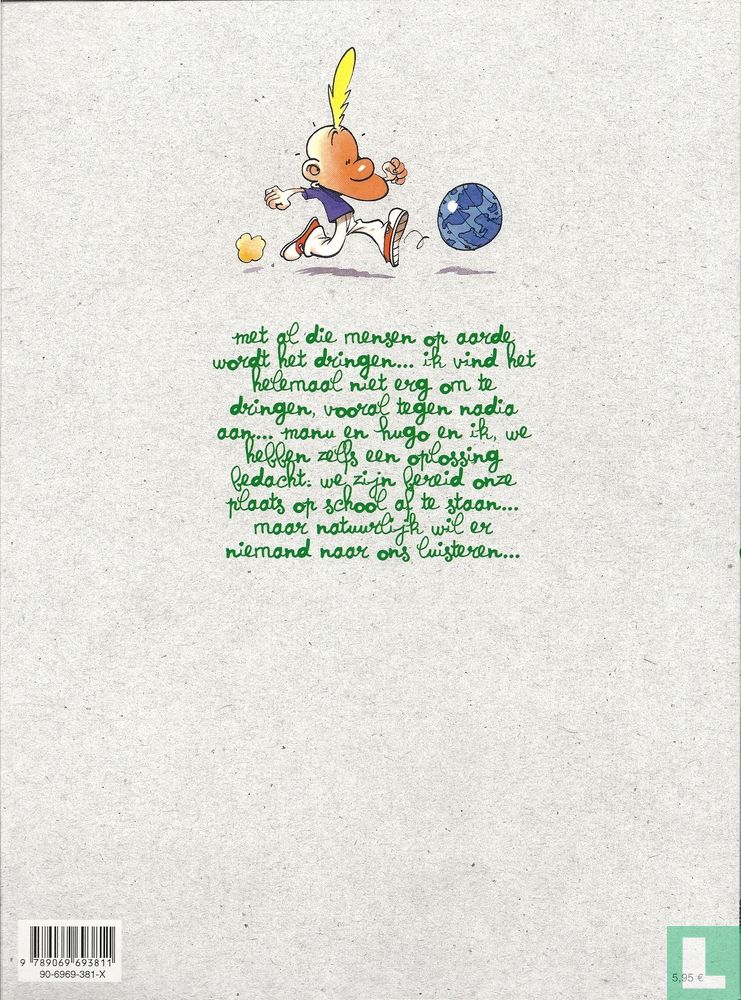 met al die mensen op aarde
wordt het dringen... ik vind het
helemaal niet erg om te
dringen, vooral tegen nadia
aan... manu en hugo en ik, we
hebben zelfs een oplossing
bedacht: we zijn bereid onze
plaats op school af te staan...
maar natuurlijk wil er
niemand naar ons luisteren...
9 789069 693811
90-6969-381-X
5,95 €
L